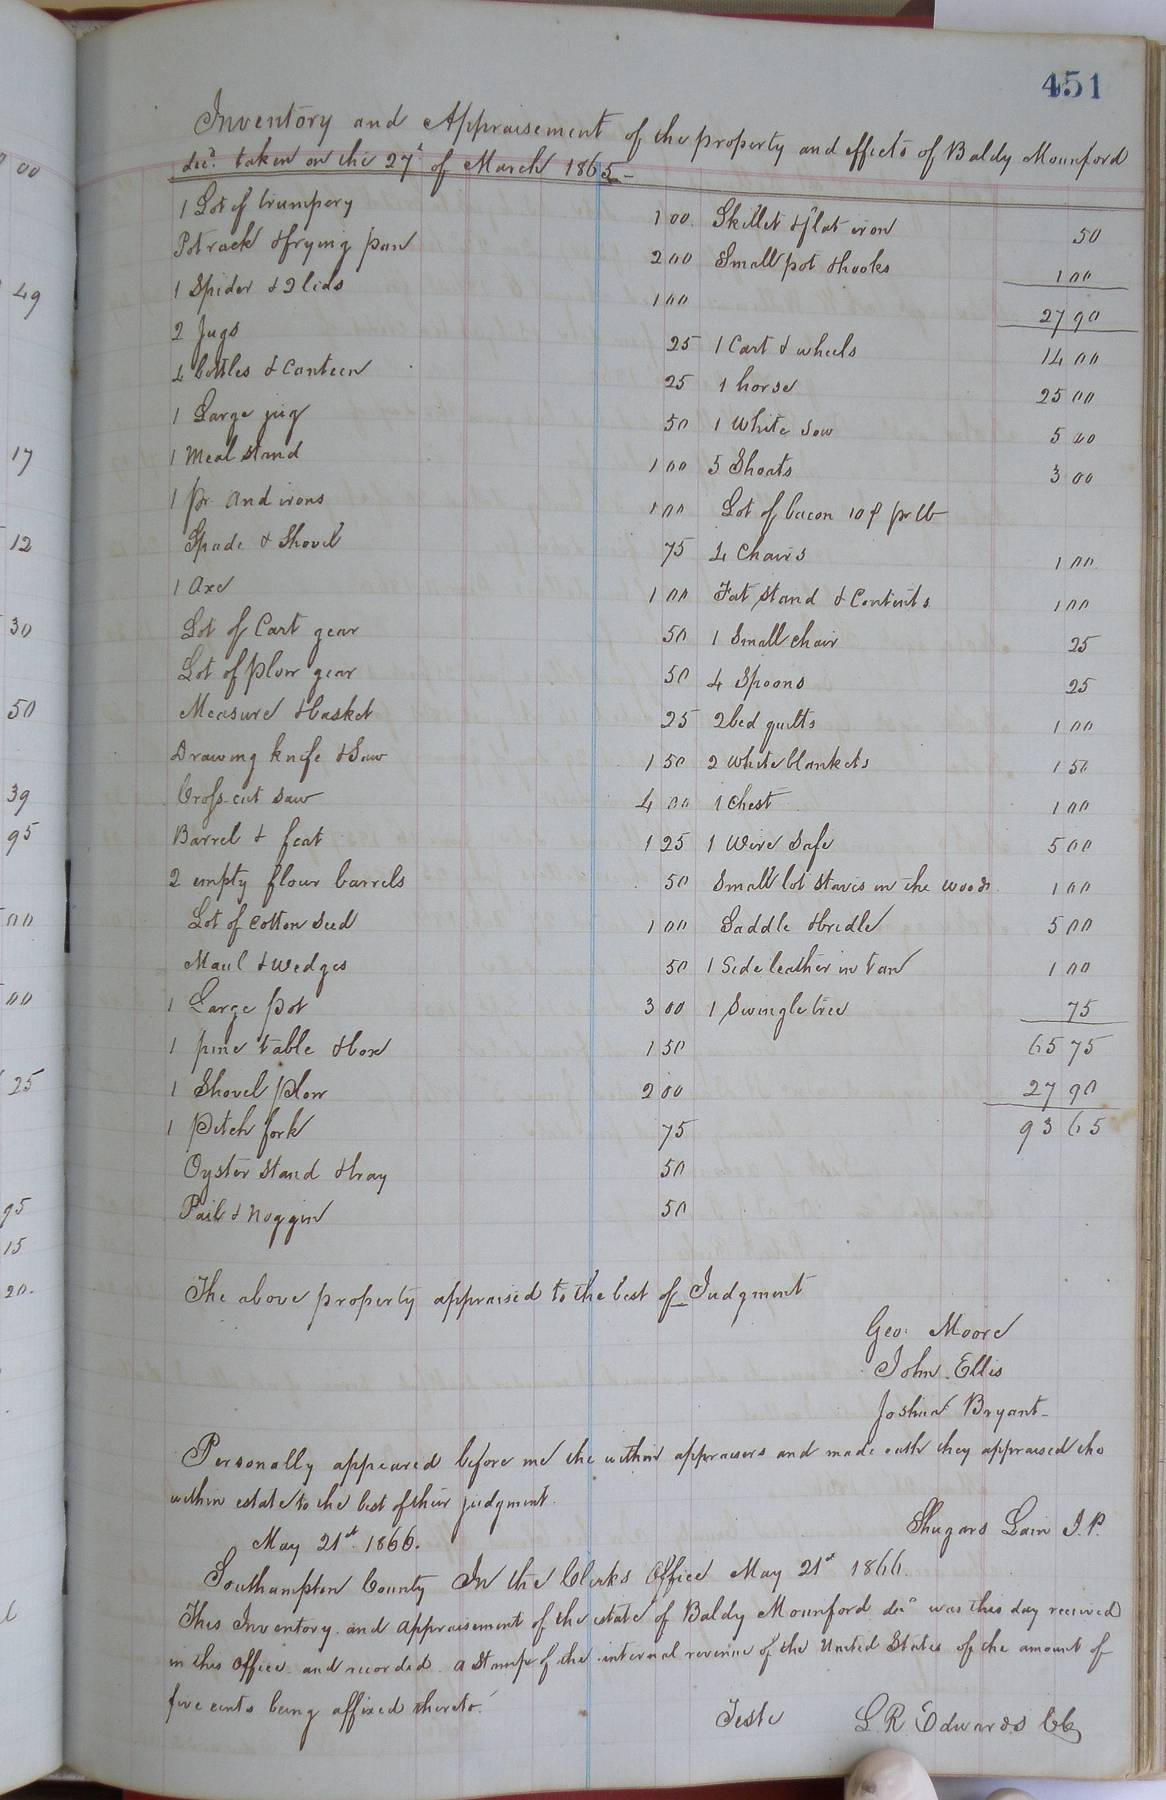 451
Inventory and Appraisement of the property and effects of Baldy Mounford
decd. taken on the 27t of March 1865 -
1 Lot of trumpery 1 00
Potrack & frying pan 2 00
1 Spider & 2 lids 1 00
2 Jugs 25
4 bottles & Canteen 25
1 Large jug 50
1 Meal stand 1 00
1 pr. And irons 1 00
Spade & Shovel 75
1 Axe 1 00
Lot of Cart gear 50
Lot of plow gear 50
Measure & basket 25
Drawing knife & Saw 1 50
Cross-cut saw 4 00
Barrel & feat 1 25
2 empty flour barrels 50
Lot of cotton seed 1 00
Maul & wedges 50
1 Large pot 3 00
1 pine table & box 1 50
1 Shovel plow 2 00
1 Pitch fork 75
Oyster stand & tray 50
Pail & noggin 50
Skillet & flat iron 50
Small pot & hooks 1 00
27 90
1 Cart & wheels 14 00
1 horse 25 00
1 White sow 5 00
5 Shoats 3 00
Lot of bacon 10 ¢ pr lb
4 Chairs 1 00
Fat stand & Contents 1 00
1 Small chair 25
4 Spoons 25
2 bed quilts 1 00
2 white blankets 1 50
1 Chest 1 00
1 Wire Safe 5 00
Small lot staves in the woods 1 00
Saddle & bridle 5 00
1 Side leather in tan 1 00
1 Swingletree 75
65 75
27 90
93 65
The above property appraised to the best of Judgment
Geo: Moore
John Ellis
Joshua Bryant -
Personally appeared before me the within appraisers and made oath they appraised the
within estate to the best of their judgment.
Shugars Lain J.P.
May 21st. 1866.
Southampton County In the Clerks Office May 21st 1866.
This Inventory and appraisement of the estate of Baldy Mounford decd was this day received
in this Office and recorded a stamp of the internal revenue of the United States of the amount of
five cents being affixed thereto.
Teste L. R. Edwards Clk
00
49
17
12
30
50
39
95
00
00
25
95
15
20.